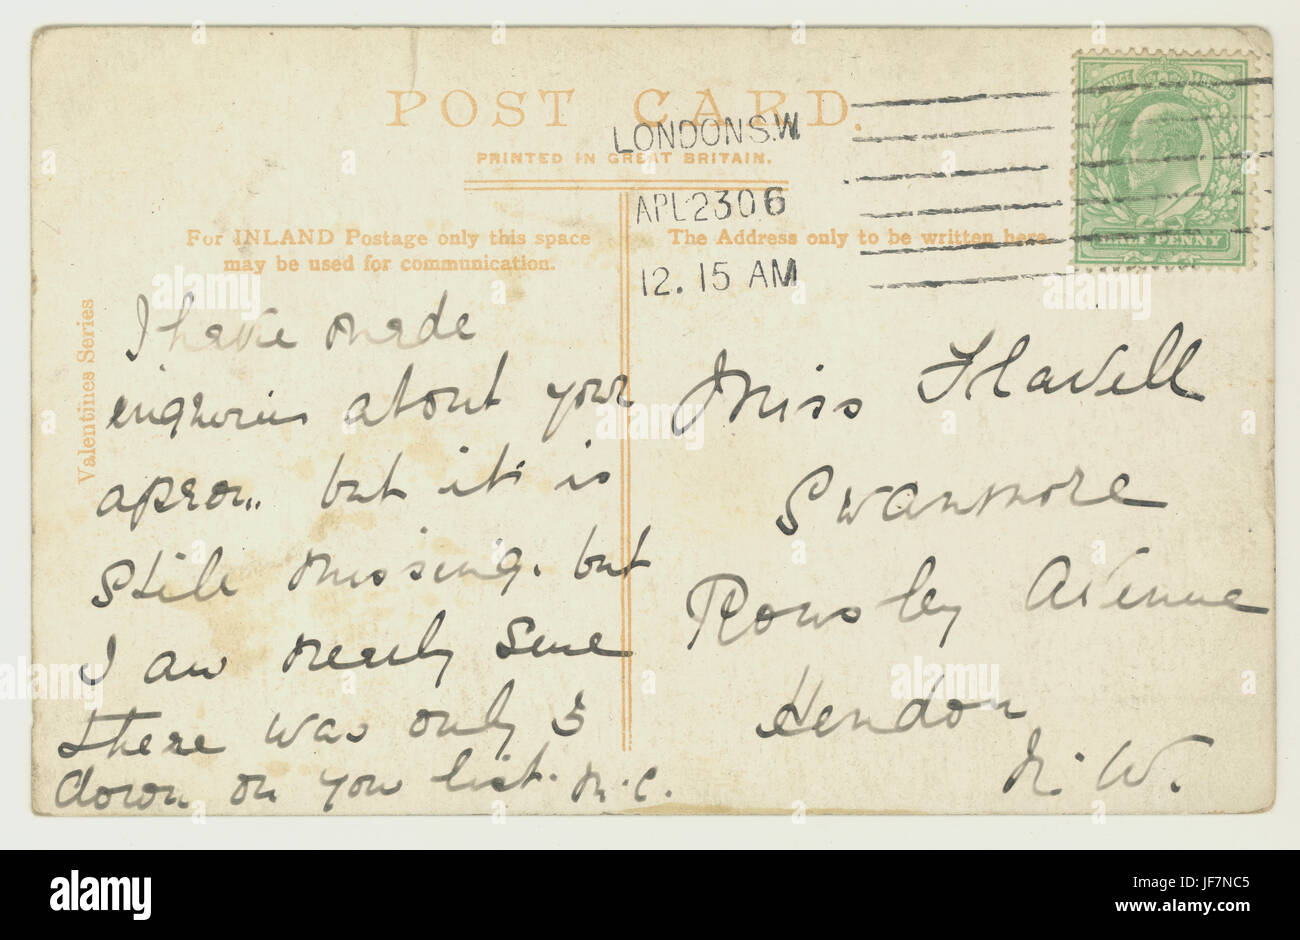 POST CARD.
PRINTED IN GREAT BRITAIN.
LONDON S.W
APL 23 06
12. 15 AM
HALF PENNY
For INLAND Postage only this space
may be used for communication.
The Address only to be written here
Valentines Series
I have made
enquiries about your
apron. but it is
still missing. but
I am nearly sure
there was only 3
down on you list. M.C.
Miss Flavell
Swanmore
Rowsley Avenue
Hendon
N. W.
alamy
alamy
Image ID: JF7NC5
www.alamy.com